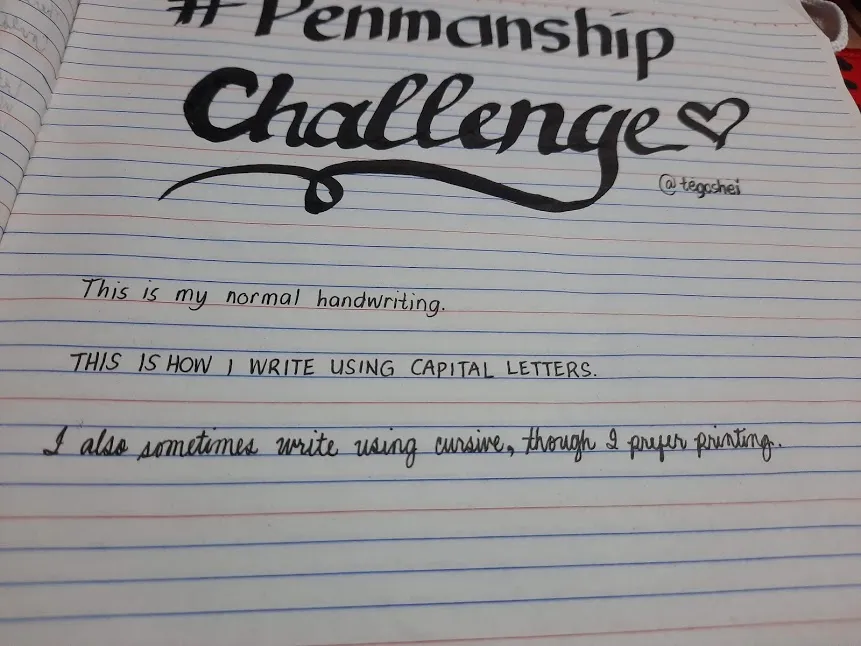 #Penmanship
Challenge
@tegashei
This is my normal handwriting.
THIS IS HOW I WRITE USING CAPITAL LETTERS.
I also sometimes write using cursive, though I prefer printing.